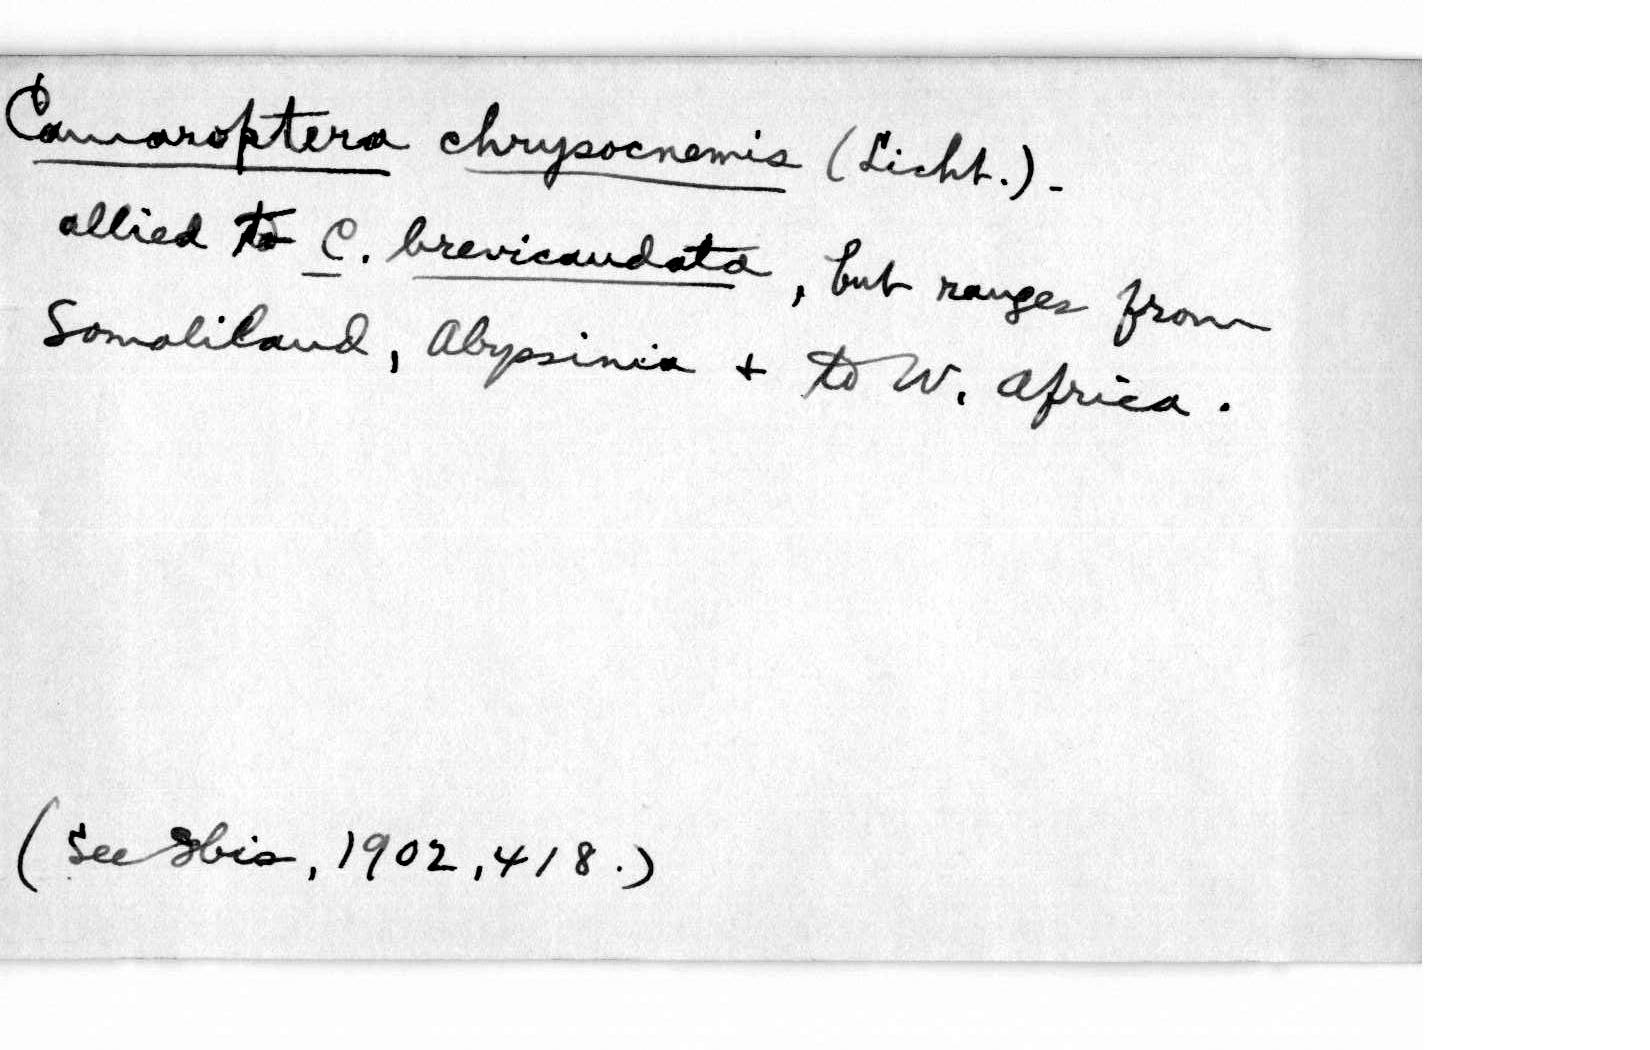 Camaroptera chrysocnemis (Licht.) -
allied to C. brevicaudata, but ranges from
Somaliland, Abyssinia + to W. Africa.
(See Ibis, 1902, 418.)